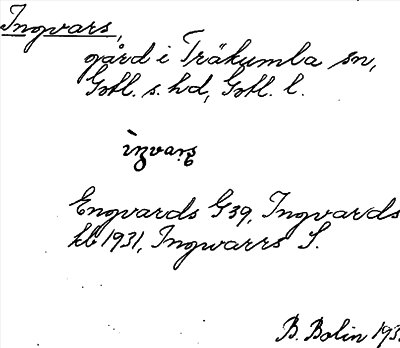 Ingvars,
gård i Träkumba sn,
Gotl. s. hd, Gotl. l.
Engvards G39, Ingvards
kb 1931, Ingwarrs S.
B. Bolin